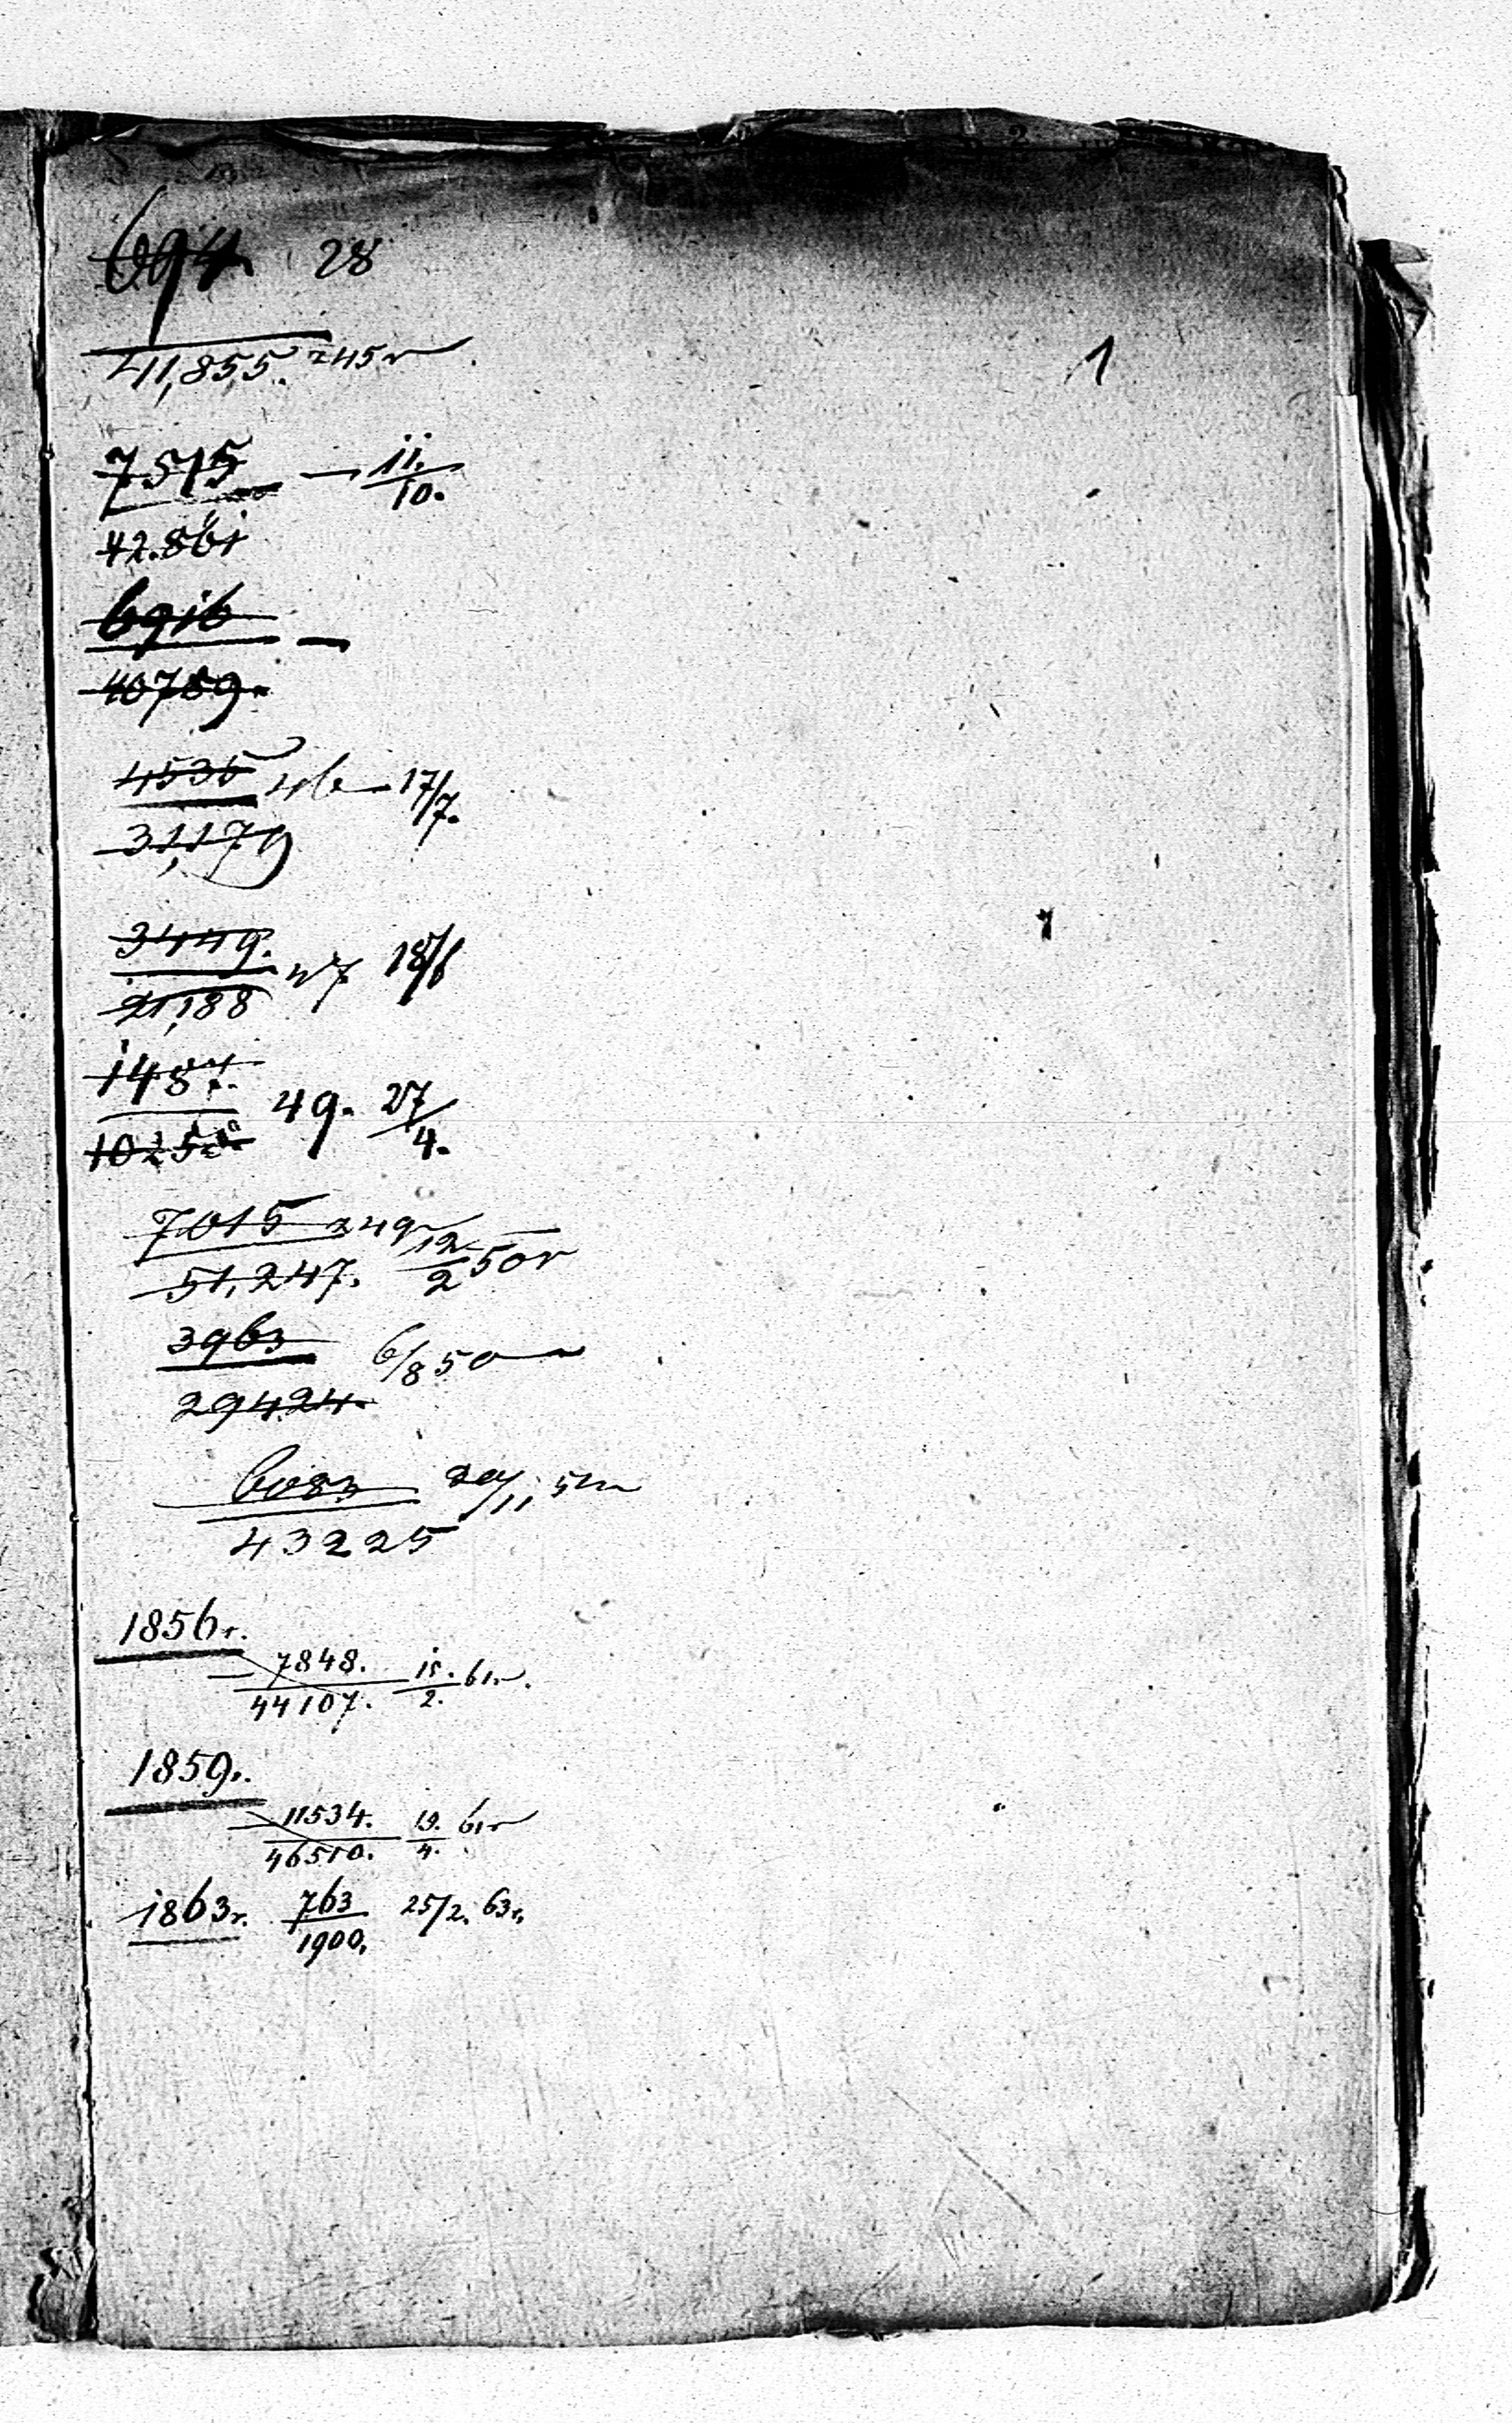 694 28
41,855. 245 r
1
7515 — 11./10.
42.861
6916 —
40789.
4535 46 — 17/7.
31,179
3449. 47 18/6
21,188
1487. 49. 27/4.
10250
7015 249 12/2 50 r
51,247.
3963 6/8 50
29424.
6083 29/11
43225
1856 r.
7848. 15./2. 61 r.
44107.
1859 r.
11534. 19./4. 61 r
46510.
1863 r. 763 25/2. 63 r.
1900.